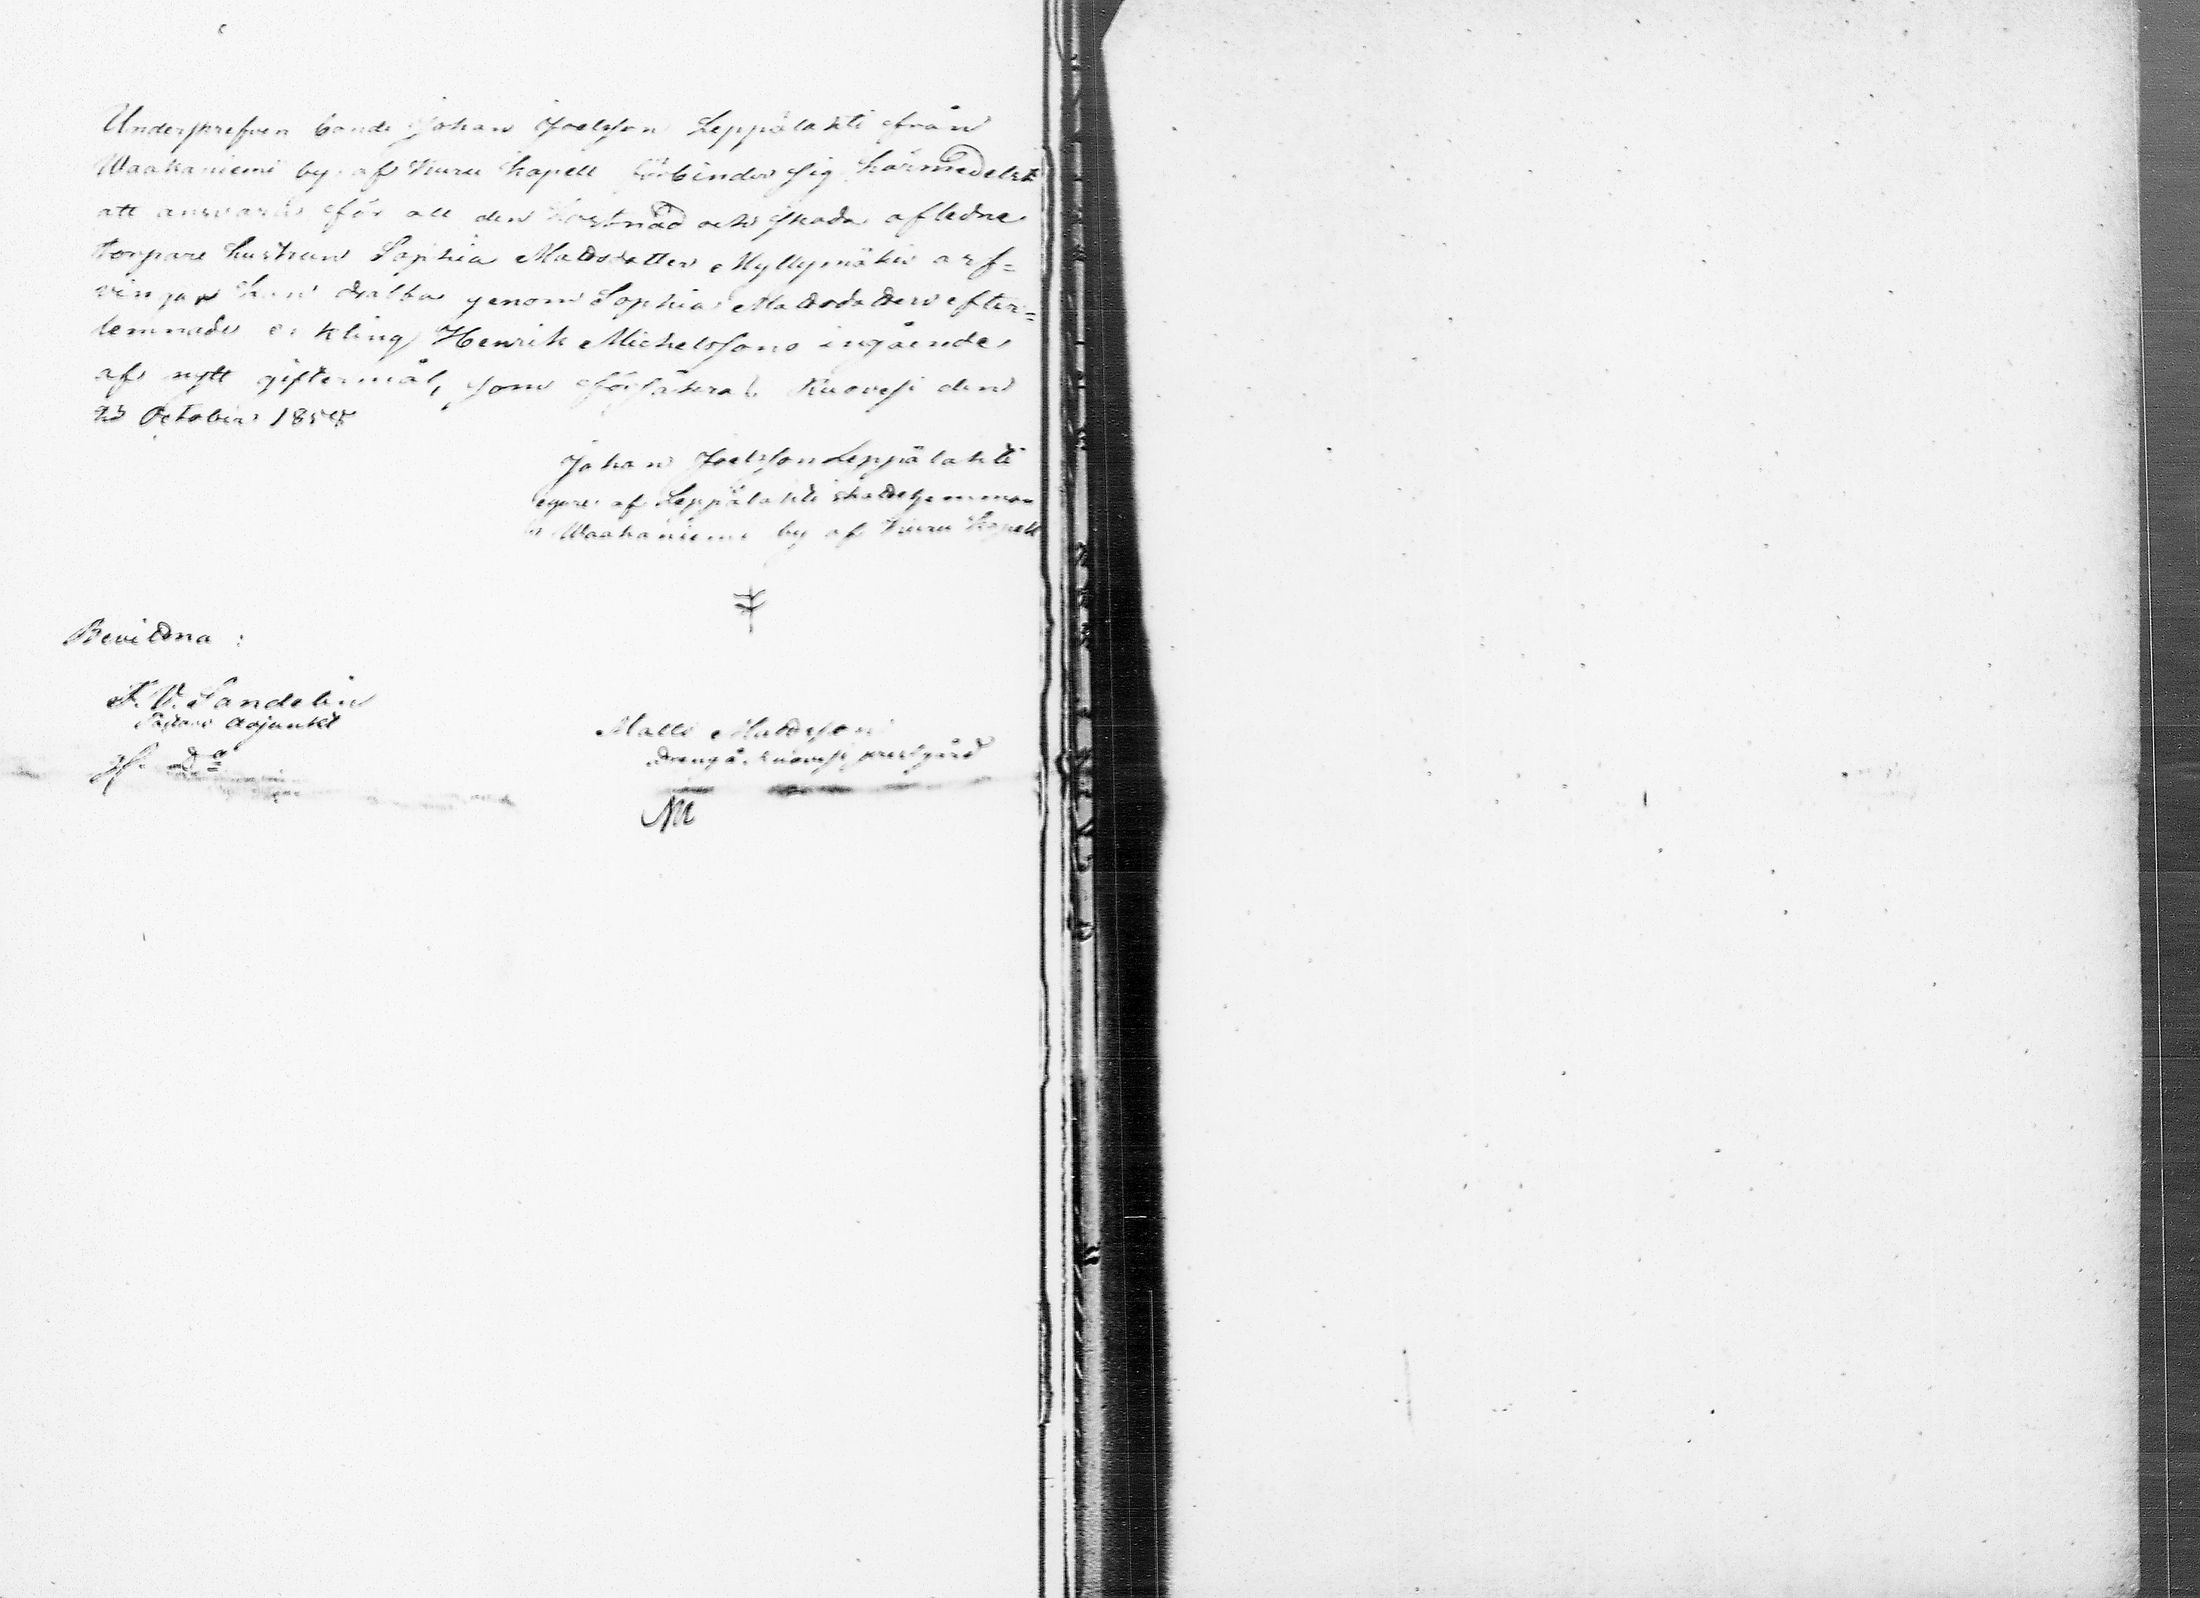 Underskrefven bonde Johan Joelsson Leppälahti från
Waakaniemi by af Kuru kapell förbinder sig härmedelst
att ansvara för all den kostnad och skada aflidne
torpare hustrun Sophia Mattsdotter Myllymäkis arf=
vingar kan drabba genom Sophia Mattsdotters efter=
lemnade enkling Henrik Michelssons ingående
af nytt giftermål, som försäkras. Ruovesi den
October 185
Johan Joelsson Leppälahti
egare af Leppälahti skattehemman
i Waakaniemi by af Kuru kapell
Bevittna :
F. W. Sandelin
Pastors Adjunkt
Matts Mattsson
Dräng å Ruovesi prestgård
MM